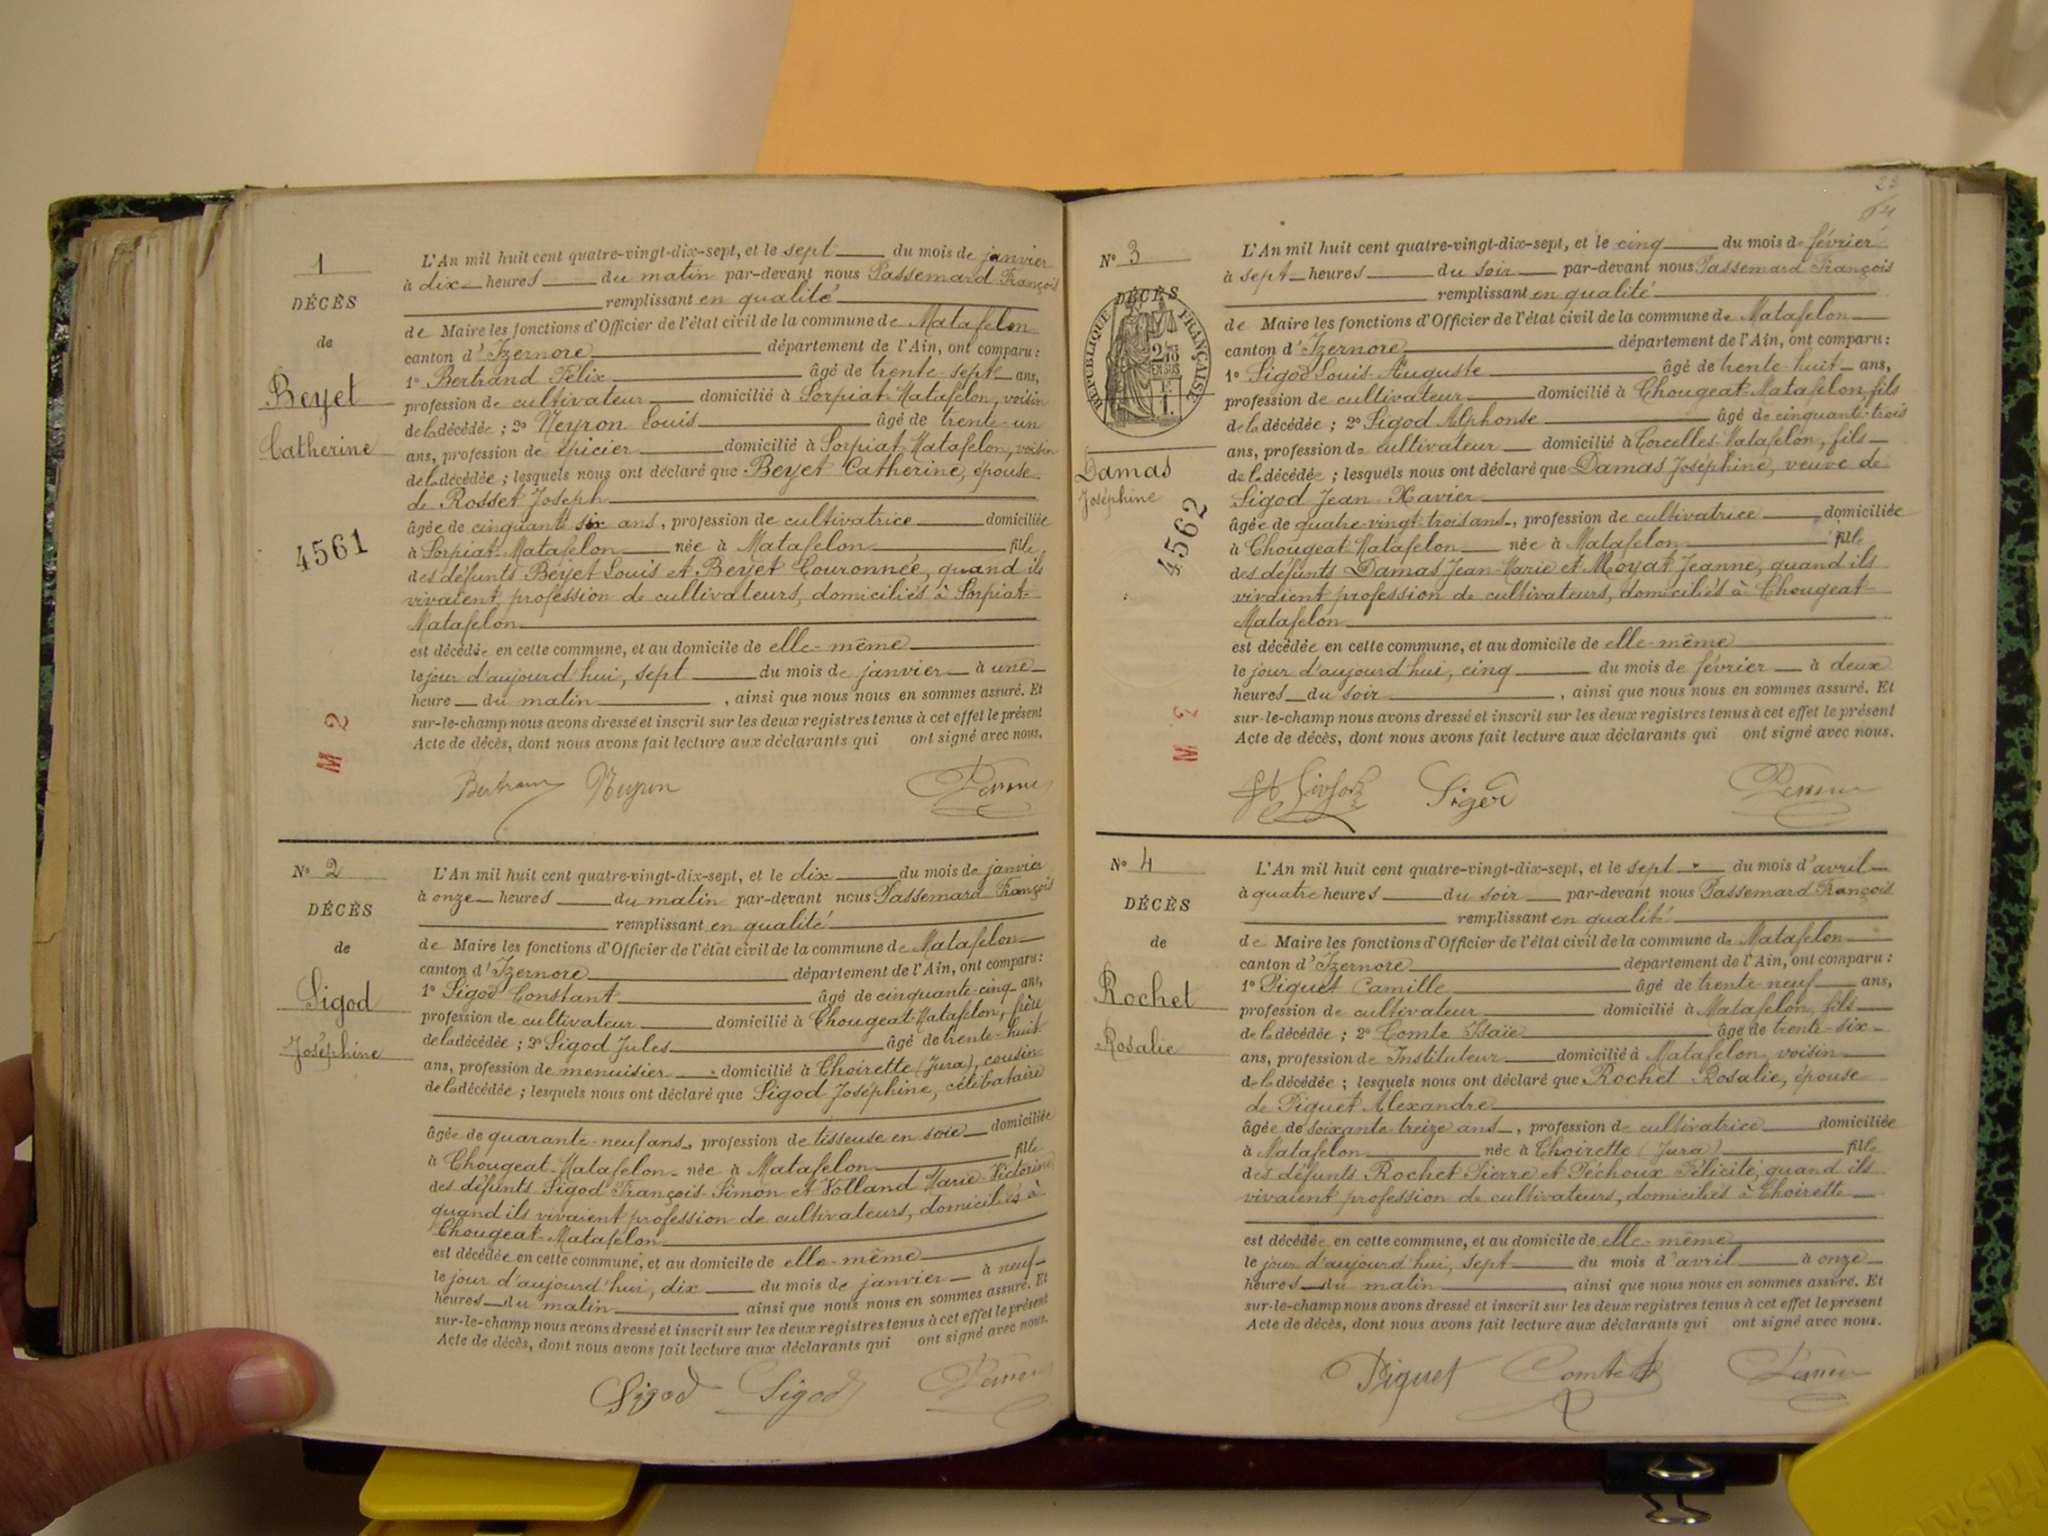 1
DÉCÈS
de
Beyet
Catherine
4561
M 2
L'An mil huit cent quatre-vingt-dix-sept, et le sept du mois de janvier
à dix heures du matin par-devant nous Passemard François
remplissant en qualité
de Maire les fonctions d'Officier de l'état civil de la commune de Matafelon
canton d'Izernore département de l'Ain, ont comparu :
1º Bertrand Félix âgé de trente-sept ans,
profession de cultivateur domicilié à Sorpiat-Matafelon, voisin
de la décédée ; 2º Neyron Louis âgé de trente-un
ans, profession de épicier domicilié à Sorpiat-Matafelon, voisin
de la décédée ; lesquels nous ont déclaré que Beyet Catherine, épouse
de Rosset Joseph
âgée de cinquante six ans, profession de cultivatrice domiciliée
à Sorpiat-Matafelon née à Matafelon fille
des défunts Beyet Louis et Beyet Couronnée, quand ils
vivaient, profession de cultivateurs, domiciliés à Sorpiat-
Matafelon
est décédée en cette commune, et au domicile de elle-même
le jour d'aujourd'hui, sept du mois de janvier à une
heure du matin , ainsi que nous nous en sommes assuré. Et
sur-le-champ nous avons dressé et inscrit sur les deux registres tenus à cet effet le présent
Acte de décès, dont nous avons fait lecture aux déclarants qui ont signé avec nous.
Bertrand Neyron
Nº 2
DÉCÈS
de
Sigod
Joséphine
L'An mil huit cent quatre-vingt-dix-sept, et le dix du mois de janvier
à onze heures du matin par-devant nous Passemard François
remplissant en qualité
de Maire les fonctions d'Officier de l'état civil de la commune de Matafelon
canton d'Izernore département de l'Ain, ont comparu :
1º Sigod Constant âgé de cinquante-cinq ans,
profession de cultivateur domicilié à Chougeat-Matafelon, frère
de la décédée ; 2º Sigod Jules âgé de trente-huit
ans, profession de menuisier domicilié à Choirette (Jura), cousin
de la décédée ; lesquels nous ont déclaré que Sigod Joséphine, célibataire
âgée de quarante-neuf ans, profession de tisseuse en soie domiciliée
à Chougeat-Matafelon née à Matafelon fille
des défunts Sigod François Simon et Volland Marie Victorine
quand ils vivaient profession de cultivateurs, domiciliés à
Chougeat-Matafelon
est décédée en cette commune, et au domicile de elle-même
le jour d'aujourd'hui, dix du mois de janvier à neuf
heures du matin ainsi que nous nous en sommes assuré. Et
sur-le-champ nous avons dressé et inscrit sur les deux registres tenus à cet effet le présent
Acte de décès, dont nous avons fait lecture aux déclarants qui ont signé avec nous.
Sigod Sigod
Nº 3
DÉCÈS
RÉPUBLIQUE FRANÇAISE
Damas
Joséphine
4562
M 2
L'An mil huit cent quatre-vingt-dix-sept, et le cinq du mois de février
à sept heures du soir par-devant nous Passemard François
remplissant en qualité
de Maire les fonctions d'Officier de l'état civil de la commune de Matafelon
canton d'Izernore département de l'Ain, ont comparu :
1º Sigod Louis Auguste âgé de trente-huit ans,
profession de cultivateur domicilié à Chougeat-Matafelon, fils
de la décédée ; 2º Sigod Alphonse âgé de cinquante-trois
ans, profession de cultivateur domicilié à Corcelles-Matafelon, fils
de la décédée ; lesquels nous ont déclaré que Damas Joséphine, veuve de
Sigod Jean Xavier
âgée de quatre-vingt-trois ans, profession de cultivatrice domiciliée
à Chougeat-Matafelon née à Matafelon fille
des défunts Damas Jean-Marie et Moyat Jeanne, quand ils
vivaient profession de cultivateurs, domiciliés à Chougeat-
Matafelon
est décédée en cette commune, et au domicile de elle-même
le jour d'aujourd'hui, cinq du mois de février à deux
heures du soir , ainsi que nous nous en sommes assuré. Et
sur-le-champ nous avons dressé et inscrit sur les deux registres tenus à cet effet le présent
Acte de décès, dont nous avons fait lecture aux déclarants qui ont signé avec nous.
Sigod
Nº 4
DÉCÈS
de
Rochet
Rosalie
L'An mil huit cent quatre-vingt-dix-sept, et le sept du mois d'avril
à quatre heures du soir par-devant nous Passemard François
remplissant en qualité
de Maire les fonctions d'Officier de l'état civil de la commune de Matafelon
canton d'Izernore département de l'Ain, ont comparu :
1º Piquet Camille âgé de trente-neuf ans,
profession de cultivateur domicilié à Matafelon, fils
de la décédée ; 2º Comte Isaïe âgé de trente-six
ans, profession de Instituteur domicilié à Matafelon, voisin
de la décédée ; lesquels nous ont déclaré que Rochet Rosalie, épouse
de Piquet Alexandre
âgée de soixante-treize ans, profession de cultivatrice domiciliée
à Matafelon née à Choirette (Jura) fille
des défunts Rochet Pierre et Péchoux Félicité, quand ils
vivaient profession de cultivateurs, domiciliés à Choirette
est décédée en cette commune, et au domicile de elle-même
le jour d'aujourd'hui, sept du mois d'avril à onze
heures du matin , ainsi que nous nous en sommes assuré. Et
sur-le-champ nous avons dressé et inscrit sur les deux registres tenus à cet effet le présent
Acte de décès, dont nous avons fait lecture aux déclarants qui ont signé avec nous.
Piquet Comte